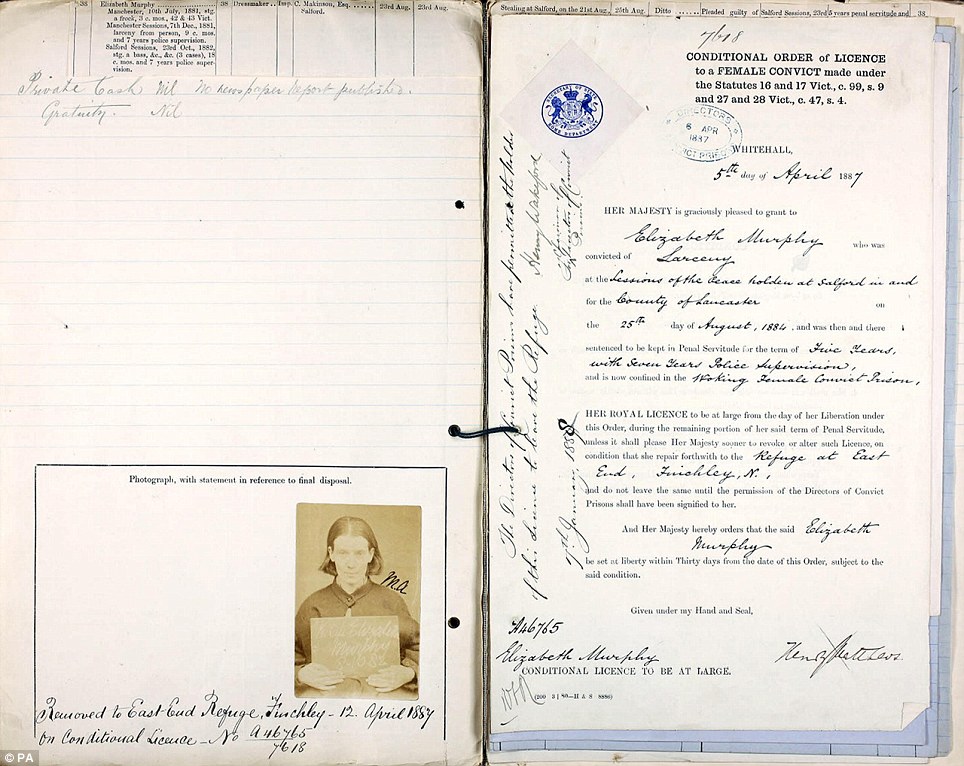 38
Elizabeth Murphy
Manchester, 10th July, 1881, stg.
a frock, 3 c. mos., 42 & 43 Vict.
Manchester Sessions, 7th Dec., 1881,
larceny from person, 9 c. mos.
and 7 years police supervision.
Salford Sessions, 23rd Oct., 1882,
stg. a bass, &c., &c. (3 cases), 18
c. mos. and 7 years police super-
vision.
38
Dressmaker
Insp. C. Makinson, Esq.
Salford.
23rd Aug.
23rd Aug.
Private Cash Nil No newspaper report published.
Gratuity. Nil
Photograph, with statement in reference to final disposal.
M.A
Removed to East End Refuge, Finchley - 12. April 1887
On Conditional Licence - No A46765
7618
© PA
Stealing at Salford, on the 21st Aug.
25th Aug.
Ditto
Pleaded guilty of
Salford Sessions, 23rd
5 years penal servitude and
38
7618
CONDITIONAL ORDER of LICENCE
to a FEMALE CONVICT made under
the Statutes 16 and 17 Vict., c. 99, s. 9
and 27 and 28 Vict., c. 47, s. 4.
SECRETARY OF STATE
HOME DEPARTMENT
DIRECTORS
6 APR
1887
WHITEHALL,
5th day of April 1887
HER MAJESTY is graciously pleased to grant to
Elizabeth Murphy who was
convicted of Larceny
at the Sessions of the Peace holden at Salford in and
for the County of Lancaster on
the 25th day of August, 1884, and was then and there
sentenced to be kept in Penal Servitude for the term of Five Years,
with Seven Years Police Supervision,
and is now confined in the Woking Female Convict Prison,
HER ROYAL LICENCE to be at large from the day of her Liberation under
this Order, during the remaining portion of her said term of Penal Servitude,
unless it shall please Her Majesty sooner to revoke or alter such Licence, on
condition that she repair forthwith to the Refuge at East
End, Finchley, N.,
and do not leave the same until the permission of the Directors of Convict
Prisons shall have been signified to her.
And Her Majesty hereby orders that the said Elizabeth
Murphy
be set at liberty within Thirty days from the date of this Order, subject to the
said condition.
Given under my Hand and Seal,
A46765
Elizabeth Murphy
Henry Matthews
CONDITIONAL LICENCE TO BE AT LARGE.
The Directors of Convict Prisons have permitted the holder
of this license to leave the Refuge.
January, 1888